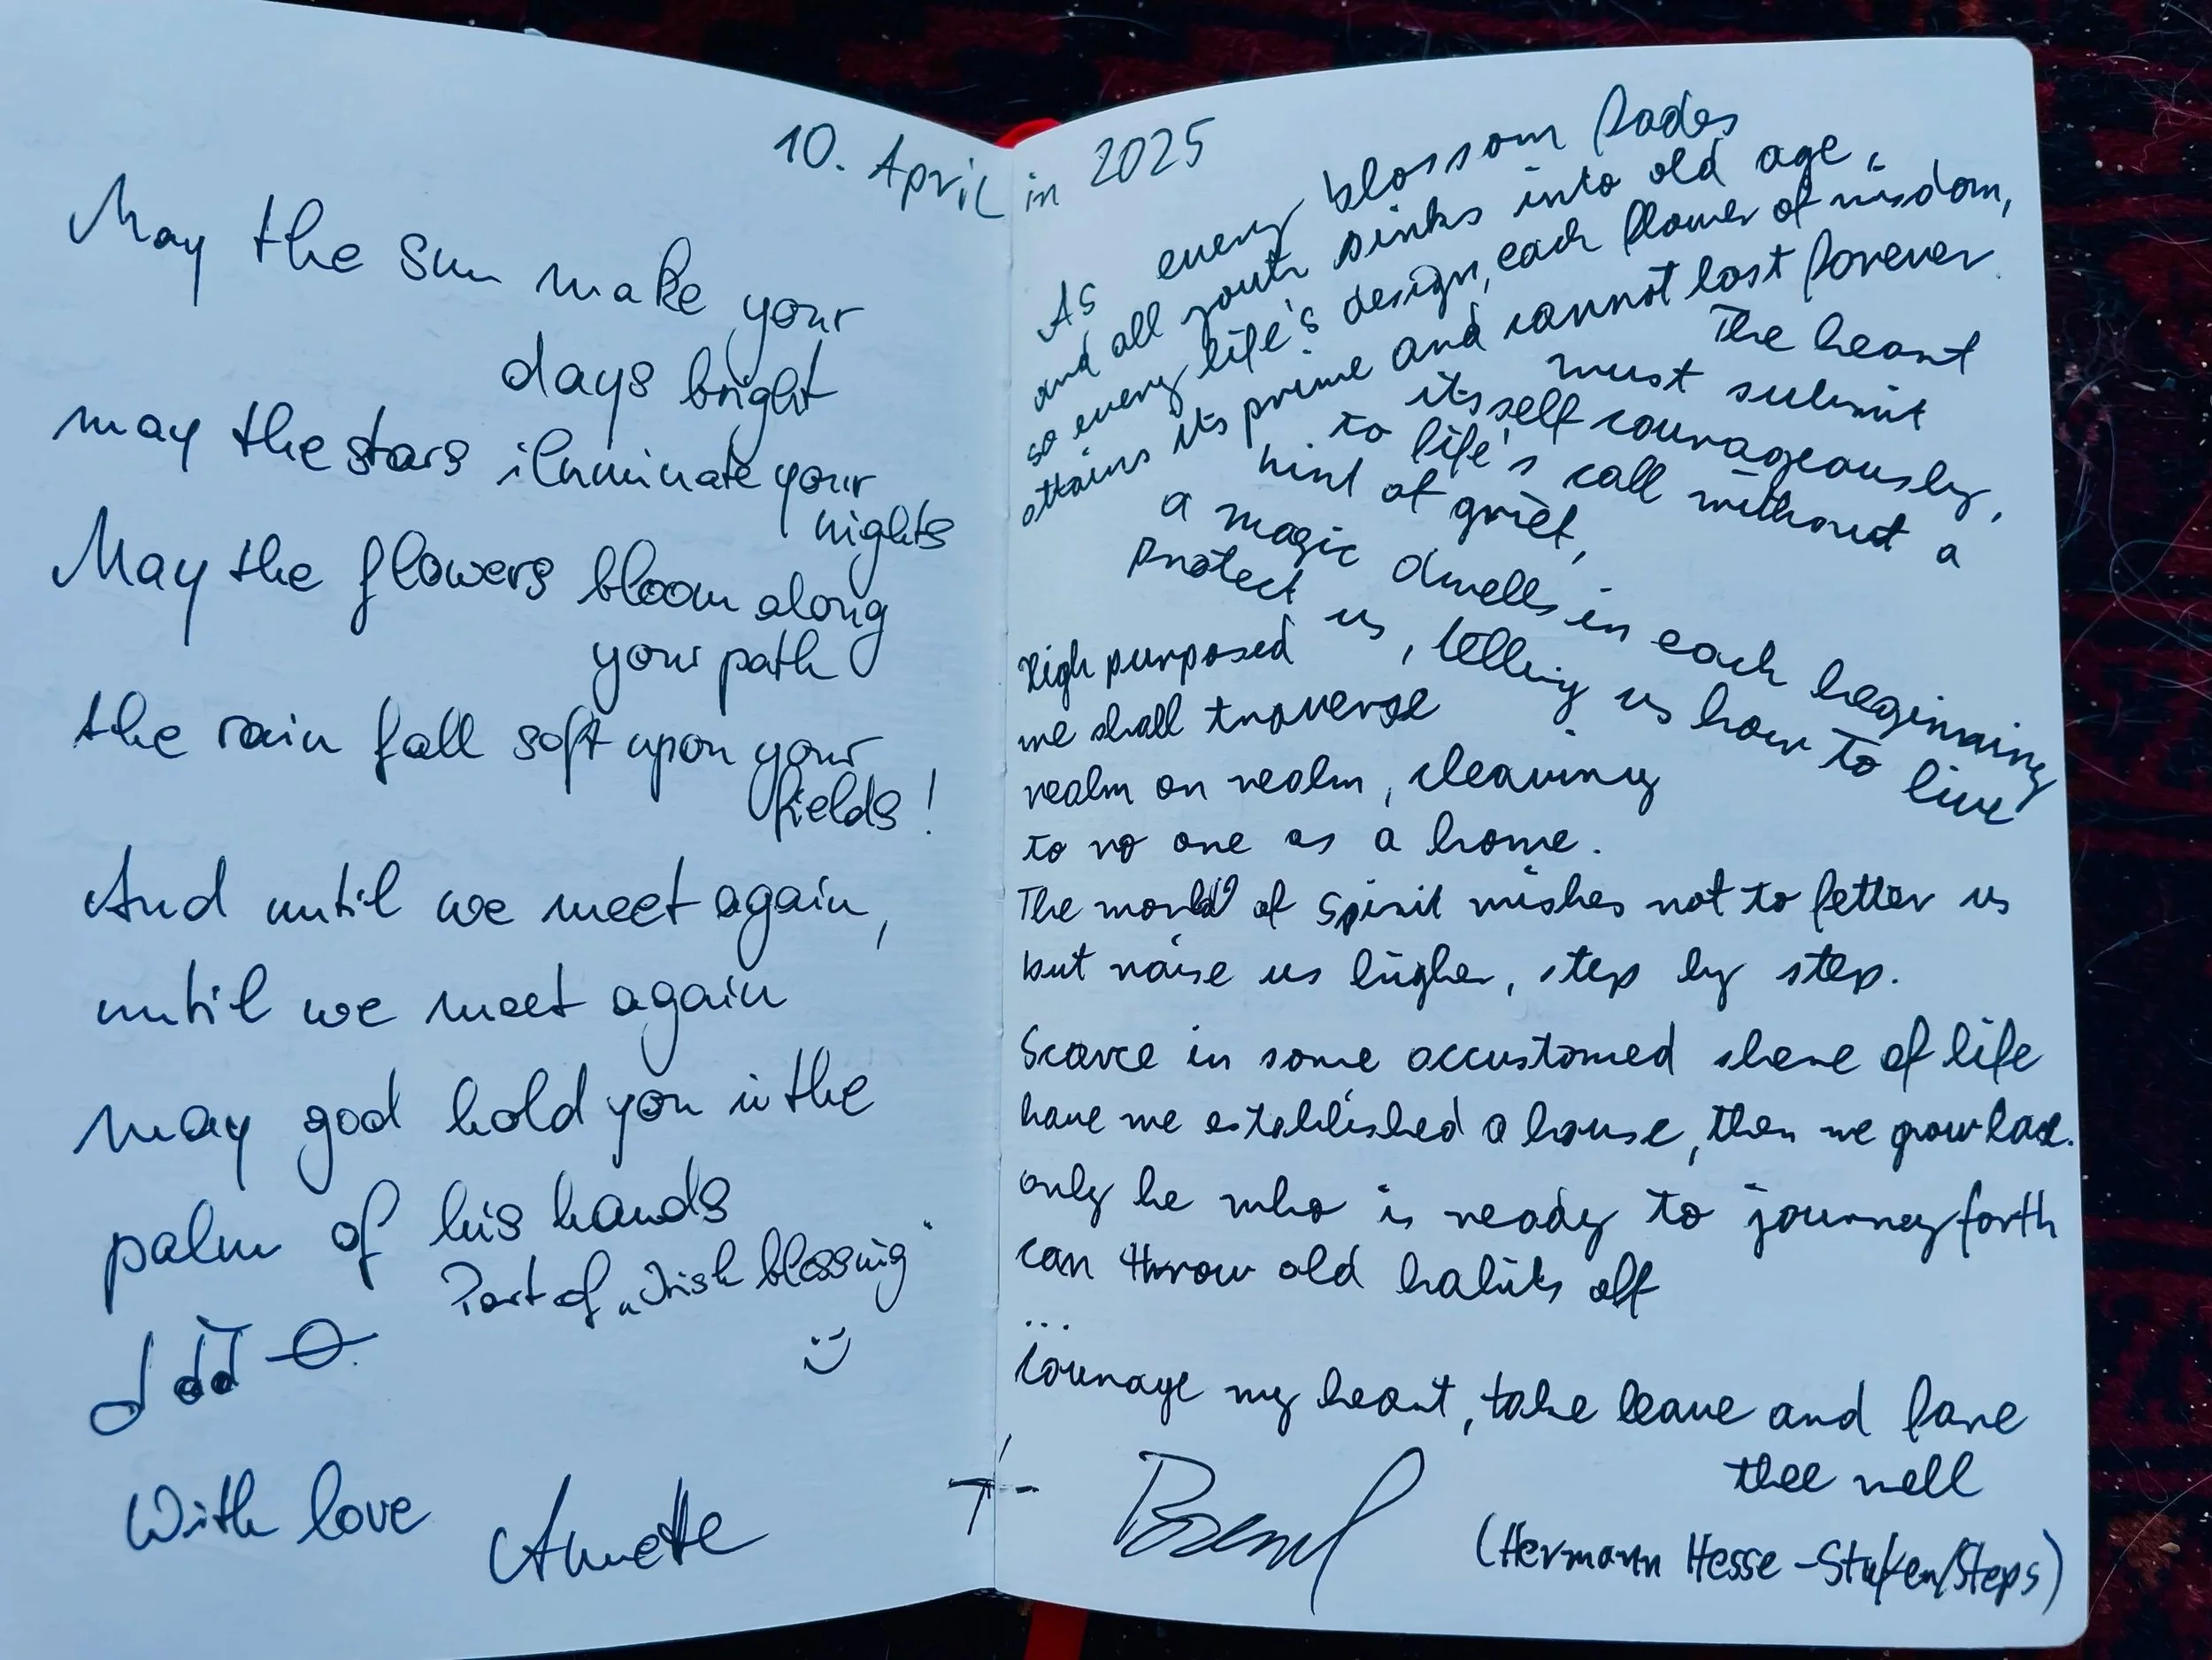 10. April in 2025
May the sun make your
days bright
may the stars illuminate your
nights
May the flowers bloom along
your path
the rain fall soft upon your
fields!
And until we meet again,
until we meet again
may god hold you in the
palm of his hands
Part of „Irish blessing“
With love Annette
As every blossom fades
and all youth sinks into old age,
so every life's design, each flower of wisdom,
attains its prime and cannot last forever.
The heart
must submit
itsself courageously,
to life's call without a
hint of grief,
a magic dwells in each beginning
protect us, telling us how to live
High purposed
we shall traverse
realm on realm, cleaving
to no one as a home.
The world of spirit wishes not to fetter us
but raise us higher, step by step.
Scarce in some accustomed shere of life
have we established a house, then we grow lax.
only he who is ready to journey forth
can throw old habits off
...
Courage my heart, take leave and fare
thee well
(Hermann Hesse - Stufen/Steps)